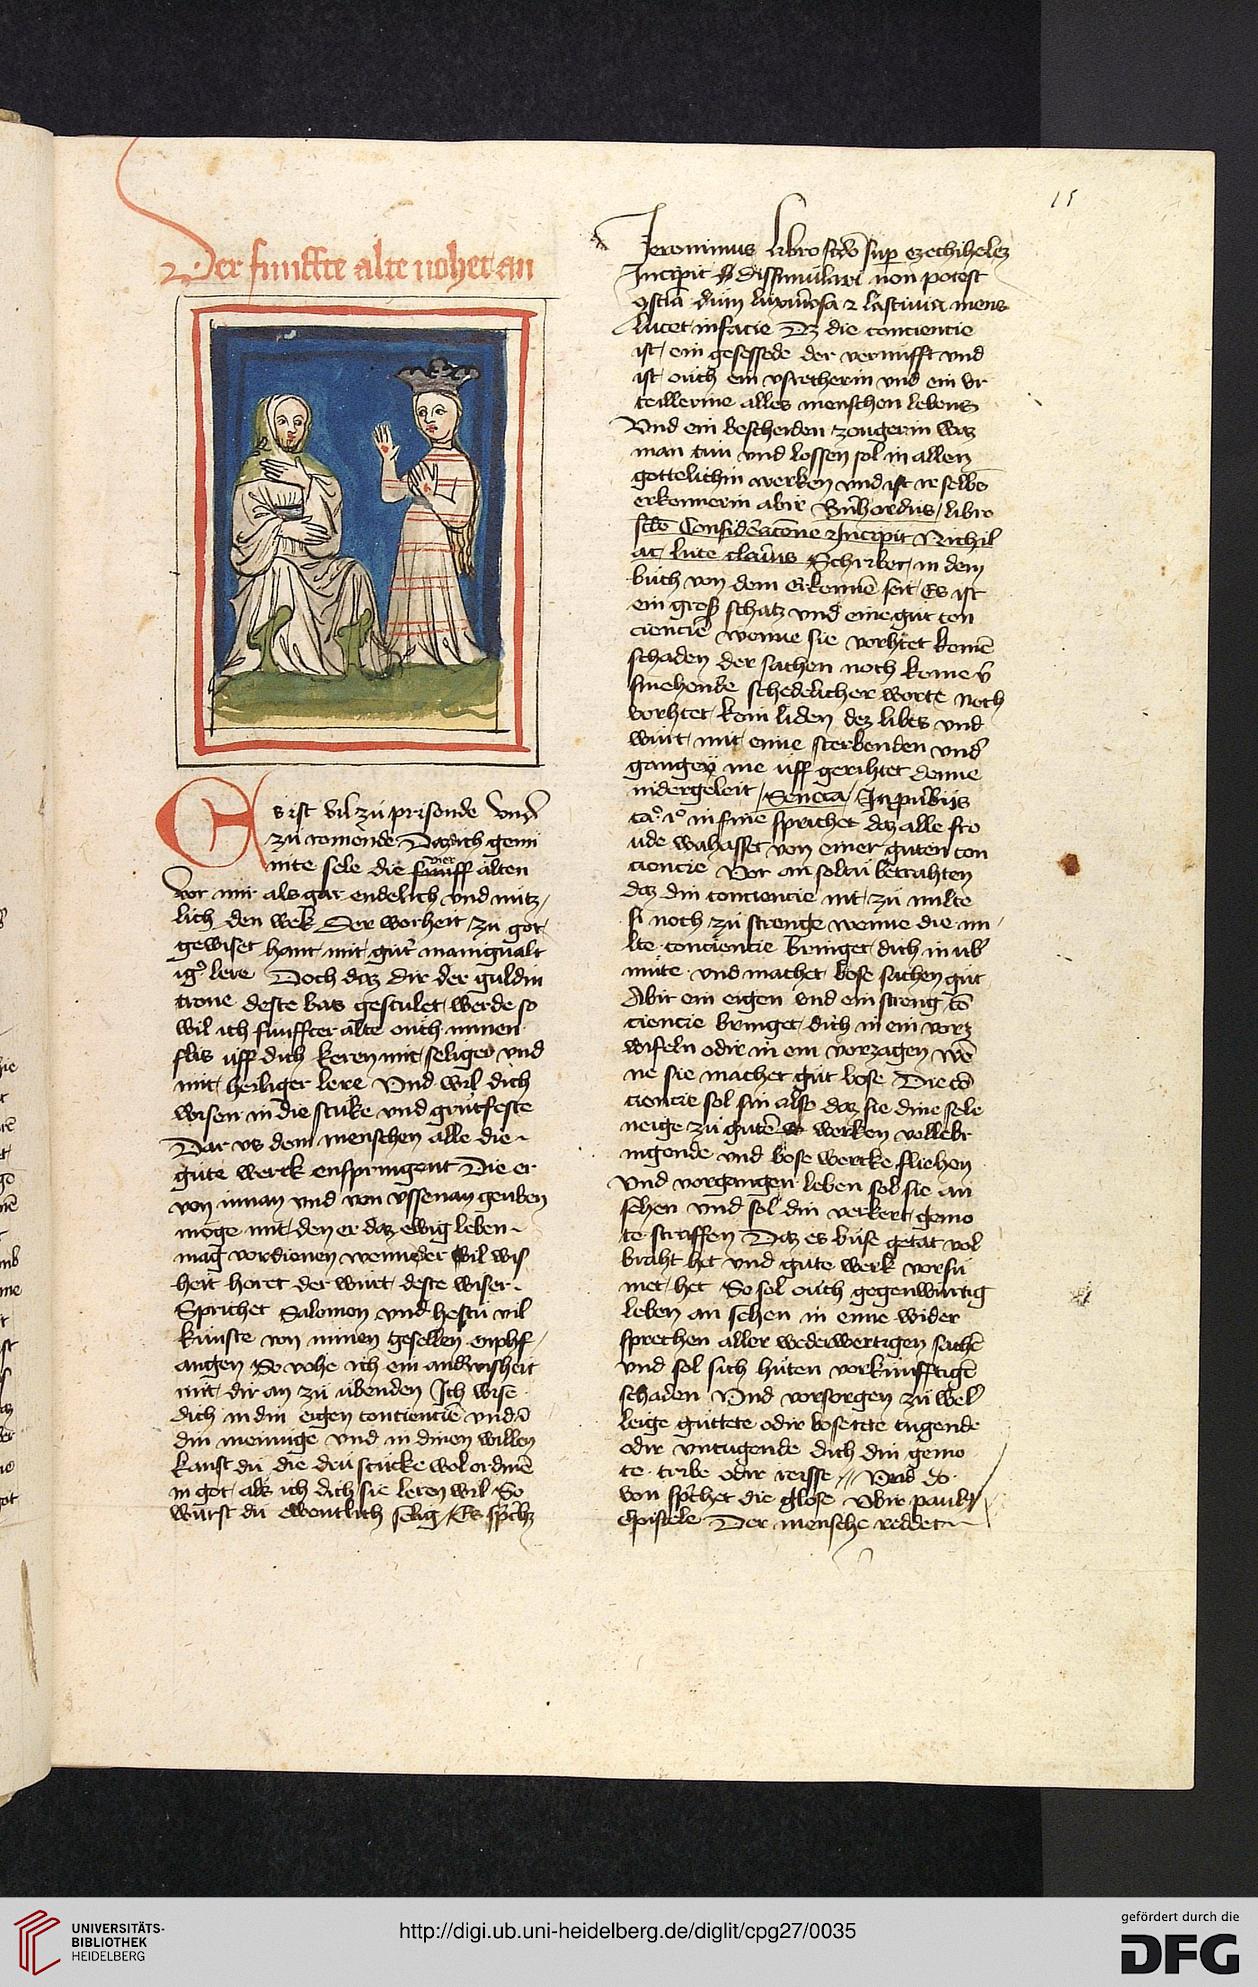 15
Der funffte alte vohet an
Es ist vil zu prisende vnd
zu romende Daz dich gemi
nte sele die vier alten
vor mir als gar endelich vnd nutz
lich den wek Der worheit zu got
gewiset hant mit gut manigualt
ig lere Doch daz dir der guldin
trone deste bas gestulet werde so
wil ich funffter alte ouch minen
flis uff dich keren mit seliger vnd
mit heiliger lere Vnd wil dich
wisen in die stuke vnd gruntfeste
Dar vs dem menschen alle die
gute werck enspringent Die er
von innan vnd von vssenan geuben
moge mit den er daz ewig leben
mag vordionen wenne der vil wis
heit horet der wirt deste wiser
Sprichet Salomon vnd hestu vil
kunste von minen gesellen enphf
angen So vohe ich ein and wisheit
mit dir an zu ubenden Ich wise
dich in din eigen conciencie vnd ī
din meinuge vnd in dinen willen
kanst du die dru stucke wol ordinē
in got als ich dich sie leren wil So
wurst du ewenklich selig Es sprichz
Jeronimus libro scdō sup ezechihelez
Incipit Dissimulari non potest
ɔstia dum luxuriosa z lasciuia mens
lucet in facie Dz die conciencie
ist ein gesessede der vernufft vnd
ist ouch ein vsrethterin vnd ein vr
teillerine alles menschen lebens
Vnd ein bescheiden zougerin waz
man tun vnd lossen sol in allen
gottelichin werken vnd ist ir selbs
erkennerin abir Bnhardus libro
scdo Considēacōne Incipit Nichil
ac luce clarius Schriber in dem
buch von dem erkennē seit Es ist
ein groß schatz vnd eine gut con
ciencie wenne sie vorhtet keinē
schaden der sachen noch keine v̄
smehende schedelicher worte noch
vorhtet kein liden dez libes vnd
wirt mit eime sterbenden vnd
gangen me uff gerihtet denne
nidergeleit Seneca In pūbijs
ca° i° in fine sprichet daz alle fro
ude wahsset von einer guten con
ciencie Vor an soltu betrahten
daz din conciencie nit zu milte
si noch zu strenge wenne die mi
lte conciencie bringet dich in ub
mute vnd machet bose sachen gut
Abir ein eigen vnd ein streng cō
ciencie bringet dich in ein vorz
wifeln odir in ein vorzagen wē
ne sie machet gut bose Die cō
ciencie sol sin also daz sie dine sele
neige zu gutē werken vollebr
ingende vnd bose wercke fliehen
Vnd vorgangen leben sol sie an
sehen vnd sol din verkert gemo
te straffen Daz es buse getat vol
braht het vnd gute werk vorsu
met het So sol ouch gegenwurtig
leben an sehen in eime wider
sprechen aller wederwertigen sachē
vnd sol sich huten vorkunfftigē
schaden Vnd vorsorgen zu wel
leige guttete odir bosetete tugende
odir vntugende dich din gemo
te tribe odir reisse Vnd do
von sprichet die glose Vbir pauly
epistele Der mensche reddet
UNIVERSITÄTS-
BIBLIOTHEK
HEIDELBERG
http://digi.ub.uni-heidelberg.de/diglit/cpg27/0035
gefördert durch die
DFG